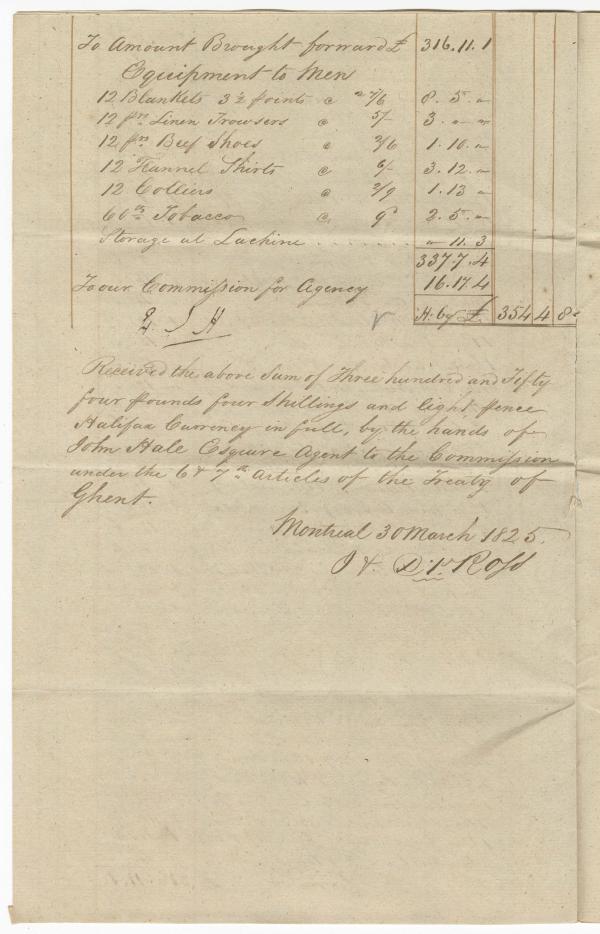 To Amount Brought forward £ 316.11.1
Equipment to Men
12 Blankets 3½ points @ 2/6 8. 5. "
12 prs Linen Trowsers @ 5/ 3. " "
12 prs Beef Shoes @ 2/6 1. 10. "
12 Flannel Shirts @ 6/ 3. 12. "
12 Colliers @ 2/9 1. 13 "
60 lbs Tobacco @ 9d 2. 5. "
Storage at Lachine . . . . . . . " 11. 3
337.7.4
To our Commission for Agency 16.17.4
H. Cy £ 354 4 8
Received the above Sum of Three hundred and Fifty
four pounds four Shillings and eight pence
Halifax Currency in full, by the hands of
John Hale Esquire Agent to the Commission
under the 6 & 7th articles of the Treaty of
Ghent.
Montreal 30 March 1825.
Ross